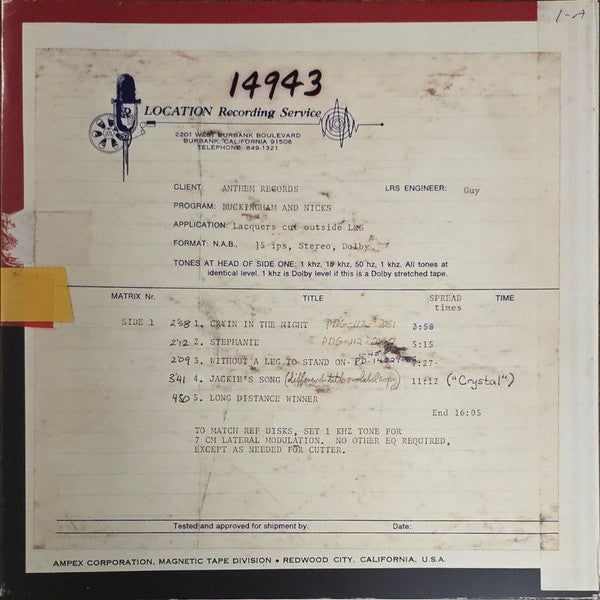 1-A
14943
LOCATION Recording Service
2201 WEST BURBANK BOULEVARD
BURBANK, CALIFORNIA 91506
TELEPHONE 849-1321
CLIENT: ANTHEM RECORDS LRS ENGINEER: Guy
PROGRAM: BUCKINGHAM AND NICKS
APPLICATION: Lacquers cut outside LRS
FORMAT: N.A.B., 15 ips, Stereo, Dolby
TONES AT HEAD OF SIDE ONE; 1 khz, 15 khz, 50 hz, 1 khz. All tones at
identical level. 1 khz is Dolby level if this is a Dolby stretched tape.
MATRIX Nr. TITLE SPREAD TIME
times
SIDE 1 2:58 1. CRYIN IN THE NIGHT 2:58
2:12 2. STEPHANIE 5:15
2:09 3. WITHOUT A LEG TO STAND ON 7:27
3:41 4. JACKIE'S SONG (different title on label copy) 11:12 ("Crystal")
4:50 5. LONG DISTANCE WINNER
End 16:05
TO MATCH REF DISKS, SET 1 KHZ TONE FOR
7 CM LATERAL MODULATION. NO OTHER EQ REQUIRED,
EXCEPT AS NEEDED FOR CUTTER.
Tested and approved for shipment by: Date:
AMPEX CORPORATION, MAGNETIC TAPE DIVISION • REDWOOD CITY, CALIFORNIA, U.S.A.